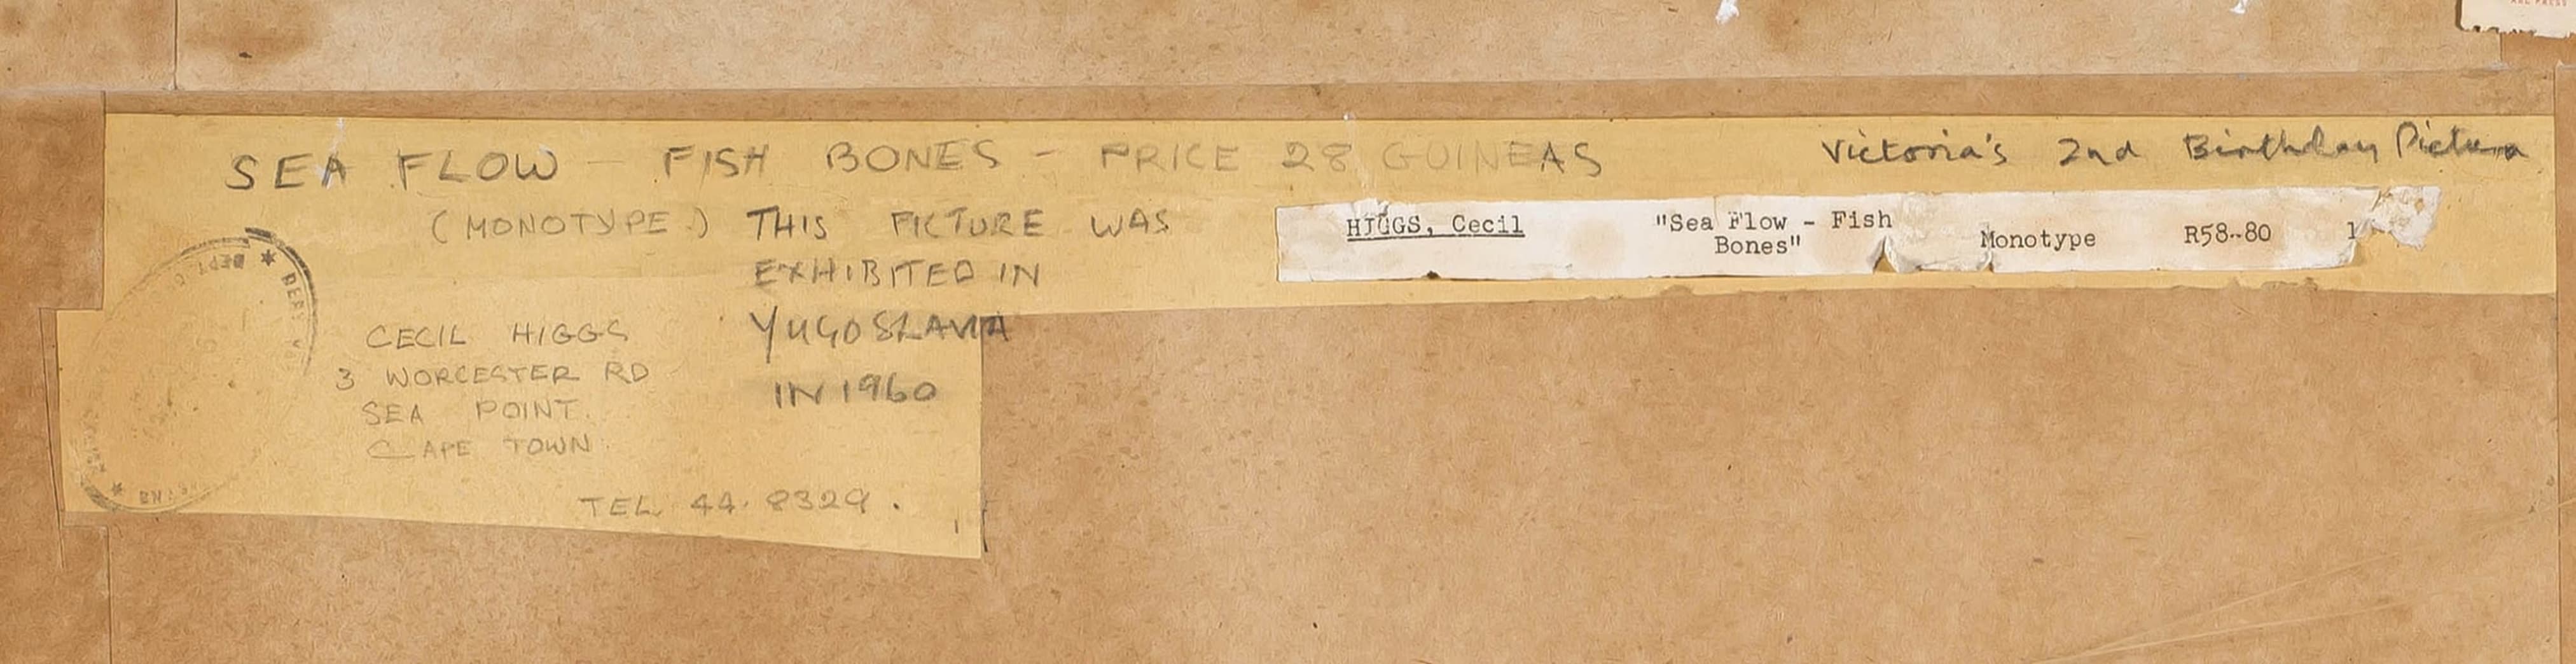 SEA FLOW - FISH BONES - PRICE 28 GUINEAS
Victoria's 2nd Birthday Picture
(MONOTYPE.) THIS PICTURE WAS
EXHIBITED IN
YUGOSLAVIA
IN 1960
HIGGS, Cecil "Sea Flow - Fish
Bones" Monotype R58-80 1
CECIL HIGGS
3 WORCESTER RD
SEA POINT.
CAPE TOWN
TEL. 44.8329.
DEPT